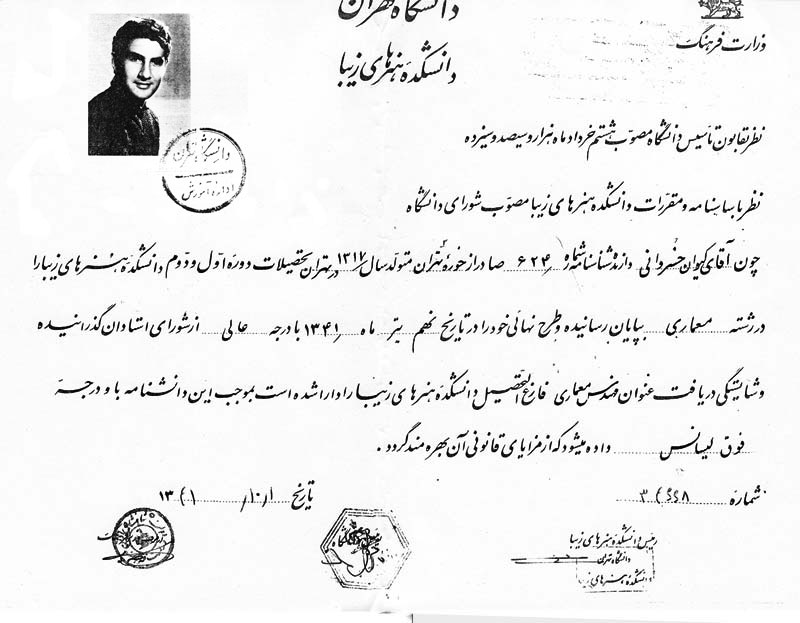 دانشگاه تهران
وزارت فرهنگ
دانشکده هنرهای زیبا
دانشگاه تهران
اداره آموزش
نظر بقانون تأسیس دانشگاه مصوب هشتم خرداد ماه هزار و سیصد و سیزده
نظر باساسنامه و مقررات دانشکده هنرهای زیبا مصوب شورای دانشگاه
چون آقای کیوان خسروانی دارنده شناسنامه شماره ۶۲۴ صادر از حوزه ۲ تهران متولد سال ۱۳۱۷ در تهران تحصیلات دوره اول و دوم دانشکده هنرهای زیبا را
در رشته معماری بپایان رسانیده و طرح نهائی خود را در تاریخ نهم تیر ماه ۱۳۴۱ با درجه عالی از شورای استادان گذرانیده
و شایستگی دریافت عنوان مهندس معماری فارغ التحصیل دانشکده هنرهای زیبا را دارا شده است بموجب این دانشنامه باو درجه
فوق لیسانس داده میشود که از مزایای قانونی آن بهره مند گردد .
شماره
تاریخ ۱۳۴۱/۱۰/۱
رئیس دانشکده هنرهای زیبا
دانشگاه تهران
دانشکده هنرهای زیبا